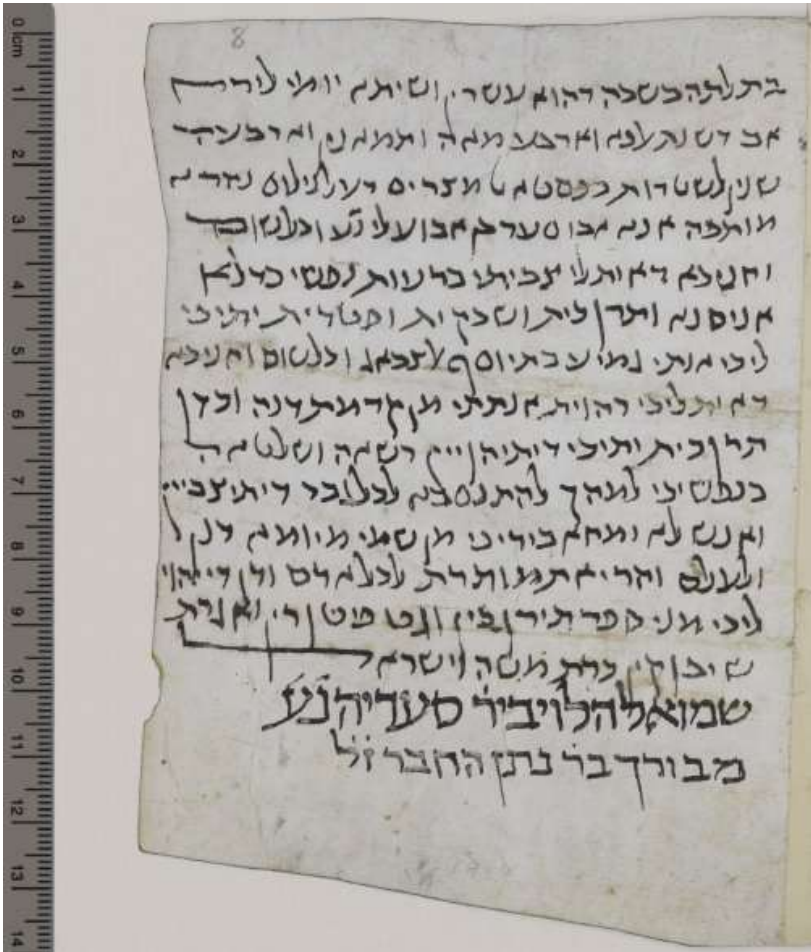 8
בתלתה בשבה דהוא עשרין ושיתא יומי לירח
אב דשנת אלפא וארבע מאה ותמאנין וארבעה
שנין לשטרות בפסטאט מצרים דעל נילוס נהרא
מותבה אנא אבו סעד בר אבו עלי נע וכל שום
וחניכא דאית לי צביתי ברעות נפשי כד לא
אניסנא ותרוכית ושבקית ופטרית יתיכי
ליכי אנתי בת יוסף אלצבאג וכל שום וחניכא
דאית ליכי דהוית אנתתי מן קדמת דנה וכדן
תרוכית יתיכי דיתיהויין רשאה ושלטאה
בנפשיכי למהך להתנסבא לכל גבר דיתיצביין
ואנש לא ימחא בידיכי מן שמי מיומא דנן
ולעלם והרי את מותרת לכל אדם ודן דיהוי
ליכי מני ספר תירוכין וגט פיטורין ואגרת
שיבוקין כדת משה וישראל
שמואל הלוי ביר סעדיה נע
מבורך בר נתן החבר זל
0 cm 1 2 3 4 5 6 7 8 9 10 11 12 13 14